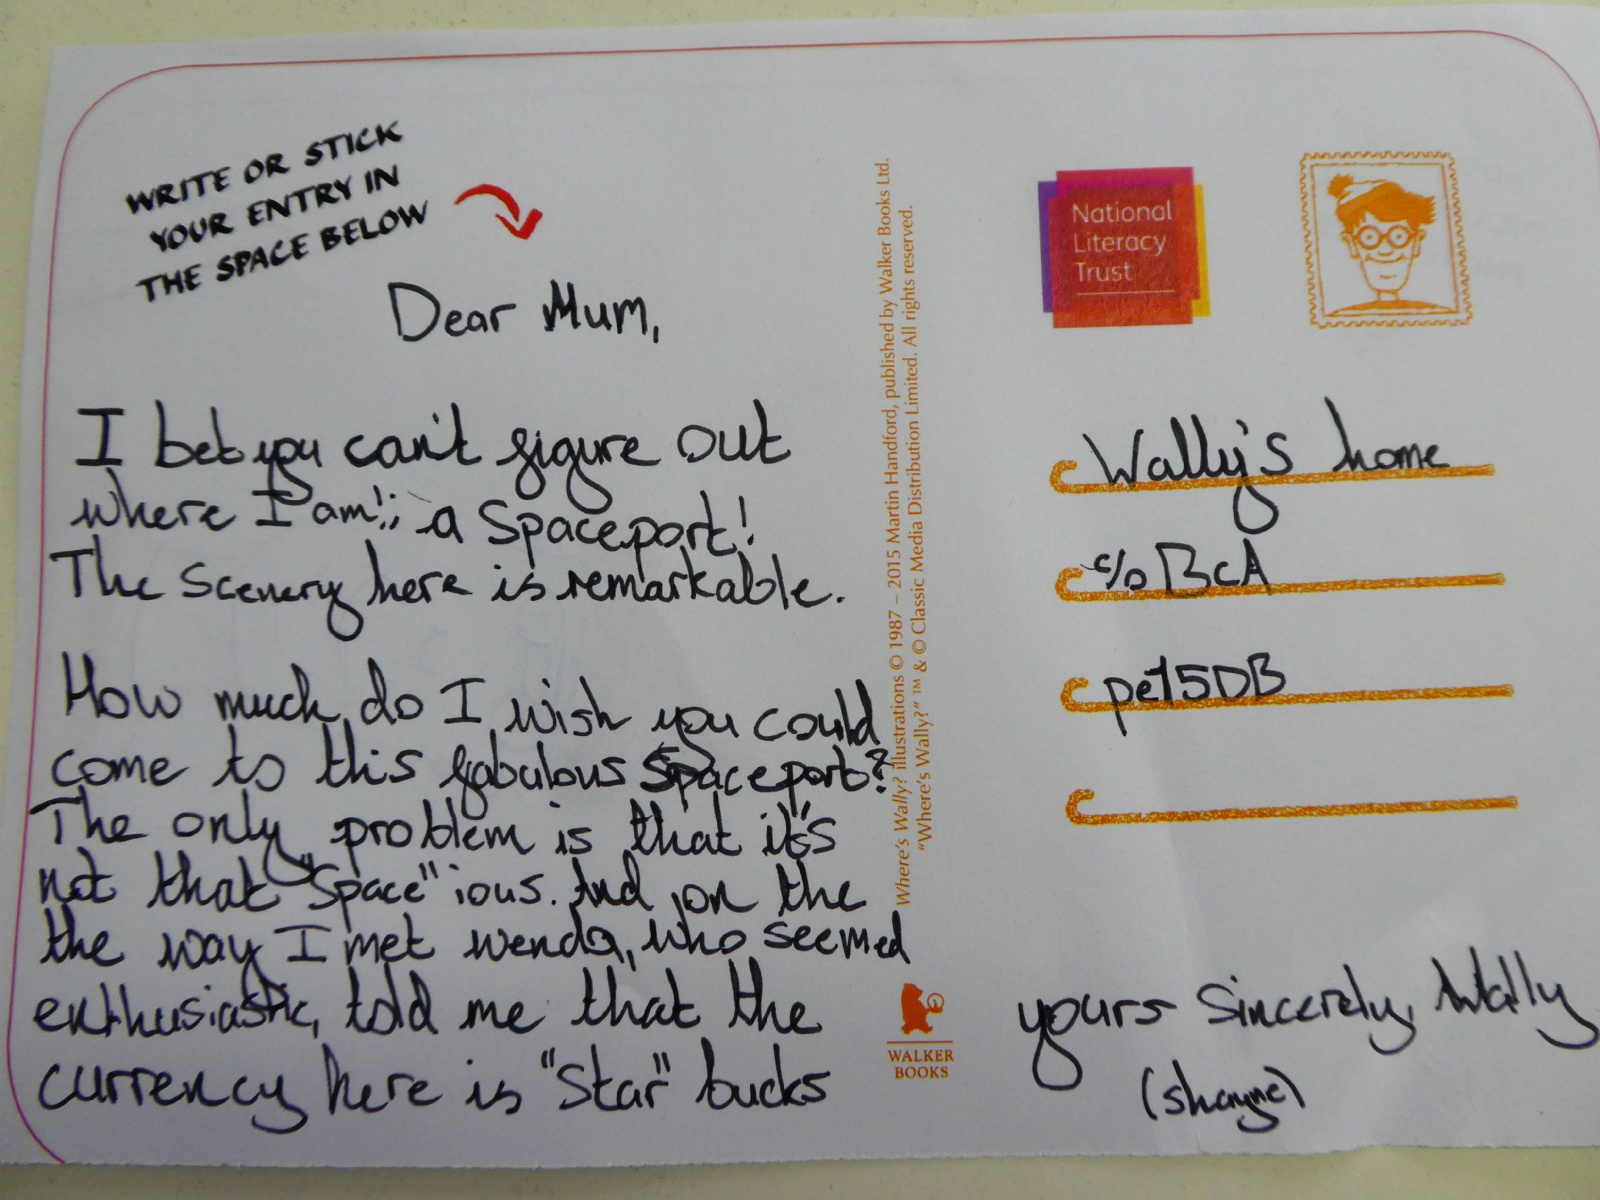 WRITE OR STICK
YOUR ENTRY IN
THE SPACE BELOW
Dear Mum,
I bet you can't figure out
where I am!; a Spaceport!
The Scenery here is remarkable.
How much do I wish you could
come to this fabulous Spaceport?
The only problem is that it's
not that "Space"ious. And on the
the way I met wenda, who seemed
enthusiastic, told me that the
currency here is "Star" bucks
Where's Wally? illustrations © 1987 – 2015 Martin Handford, published by Walker Books Ltd.
"Where's Wally?" ™ & © Classic Media Distribution Limited. All rights reserved.
WALKER
BOOKS
National
Literacy
Trust
Wally's home
c/o BcA
pe15DB
yours Sincerely, Wally
(shayne)